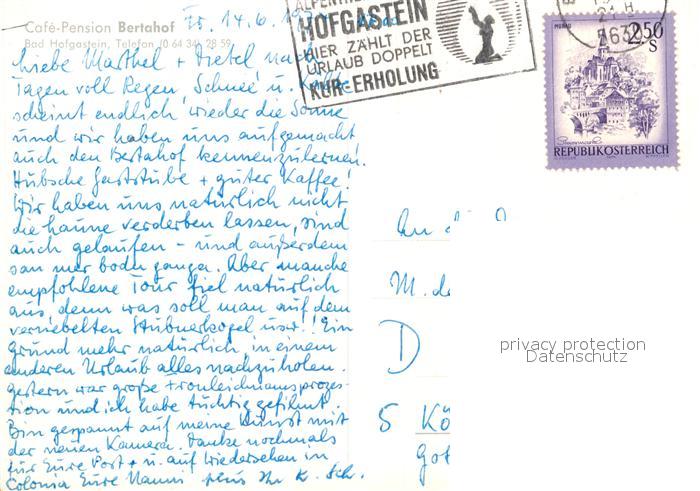 Café-Pension Bertahof
Bad Hofgastein, Telefon (0 64 34) 28 59
14.6.
Liebe Marthel + Dietel nach
Tagen voll Regen, Schnee u. Kälte
scheint endlich wieder die Sonne
und wir haben uns aufgemacht
auch den Bertahof kennenzulernen.
Hübsche Gaststube + guter Kaffee!
Wir haben uns natürlich nicht
die Laune verderben lassen, sind
auch gelaufen - und außerdem
san mer bodn ganga. Aber manche
empfohlene Tour fiel natürlich
aus, denn was soll man auf dem
vernebelten Stubnerkogel usw.! Ein
Grund mehr natürlich, in einem
anderen Urlaub alles nachzuholen.
Gestern war große Fronleichnamsprozes-
sion und ich habe tüchtig gefilmt.
Bin gespannt auf meine Kunst mit
der neuen Kamera. Danke nochmals
für Eure Post + u. auf Wiedersehen in
Colonia Eure Hanni plus Ihr K. Sch.
HOFGASTEIN
HIER ZÄHLT DER
URLAUB DOPPELT
KUR-ERHOLUNG
MURAU
2.50
S
Steiermark
REPUBLIK ÖSTERREICH
An d
M. d
D
5 Kö
Got
privacy protection
Datenschutz